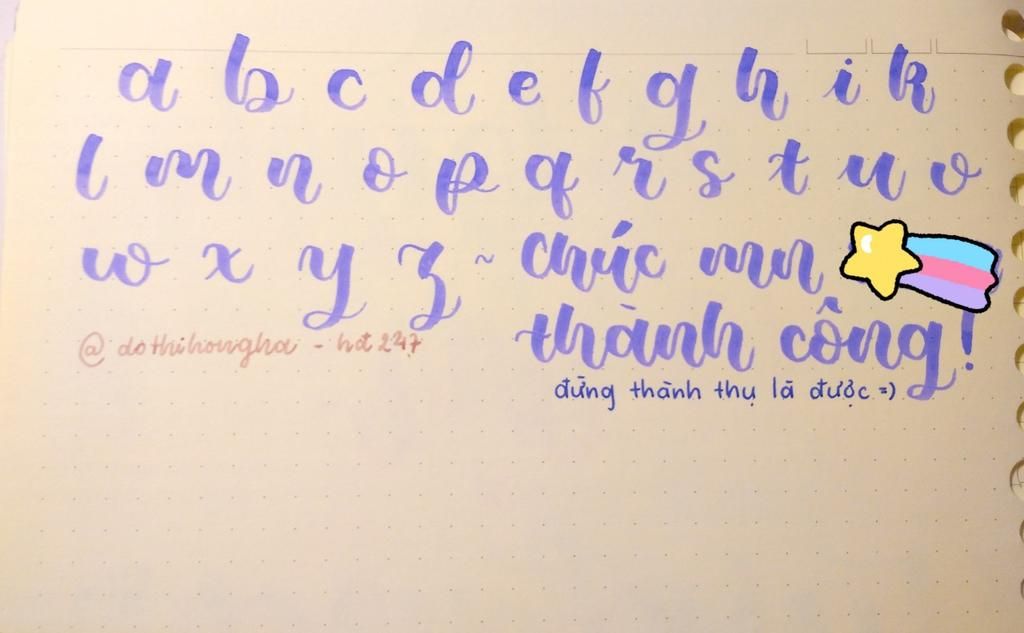 a b c d e f g h i k
l m n o p q r s t u v
w x y z ~ chúc mn
thành công!
@dothihongha - hđ 247
đừng thành thụ là được =)